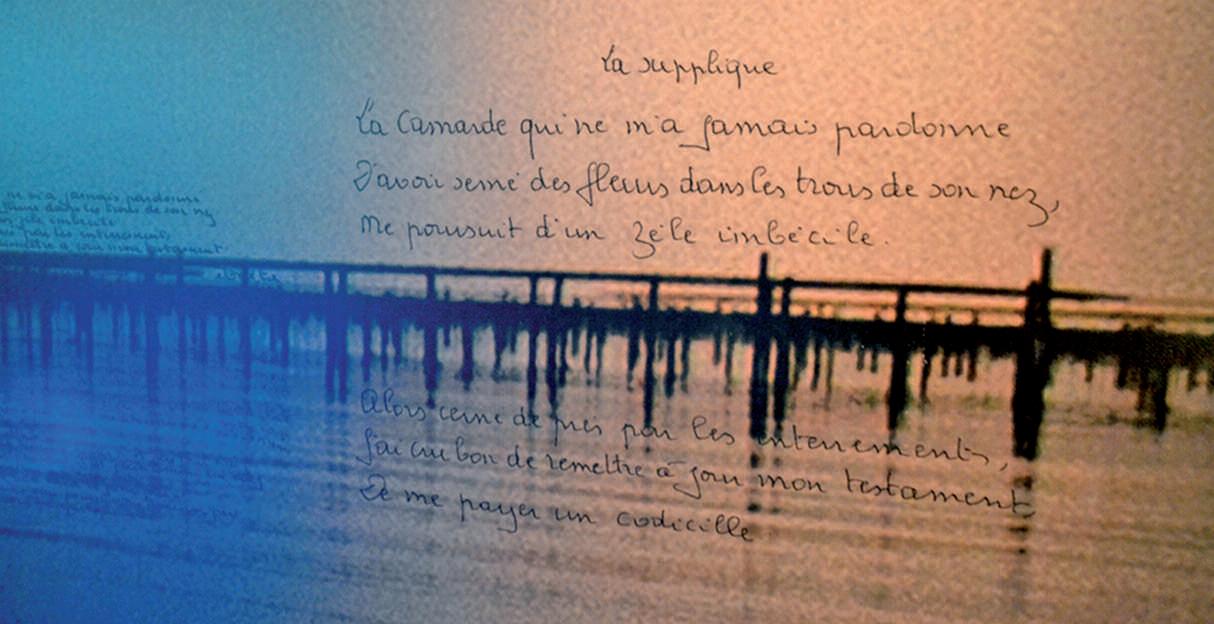 La supplique
La Camarde qui ne m'a jamais pardonne
D'avoir semé des fleurs dans les trous de son nez,
Me poursuit d'un zèle imbécile.
Alors cerné de près par les enterrements,
J'ai cru bon de remettre à jour mon testament
De me payer un codicille
ne m'a jamais pardonne
fleurs dans les trous de son nez
zèle imbécile
par les enterrements,
remettre à jour mon testament
codicille